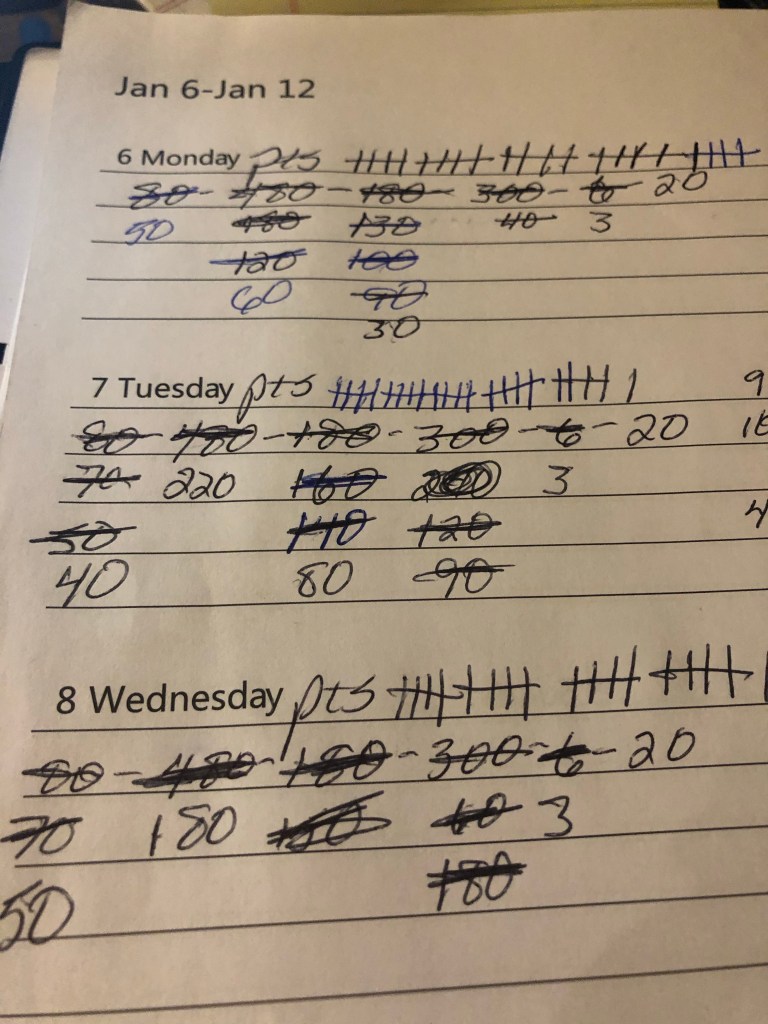 Jan 6-Jan 12
6 Monday pts
80 - 480 - 180 - 300 - 6 - 20
50 180 130 40 3
120 100
60 90
30
7 Tuesday pts 9
80 - 480 - 180 - 300 - 6 - 20
70 220 160 3
50 140 120 4
40 80 90
8 Wednesday pts
80 - 480 - 180 - 300 - 6 - 20
70 180 60 3
180
50